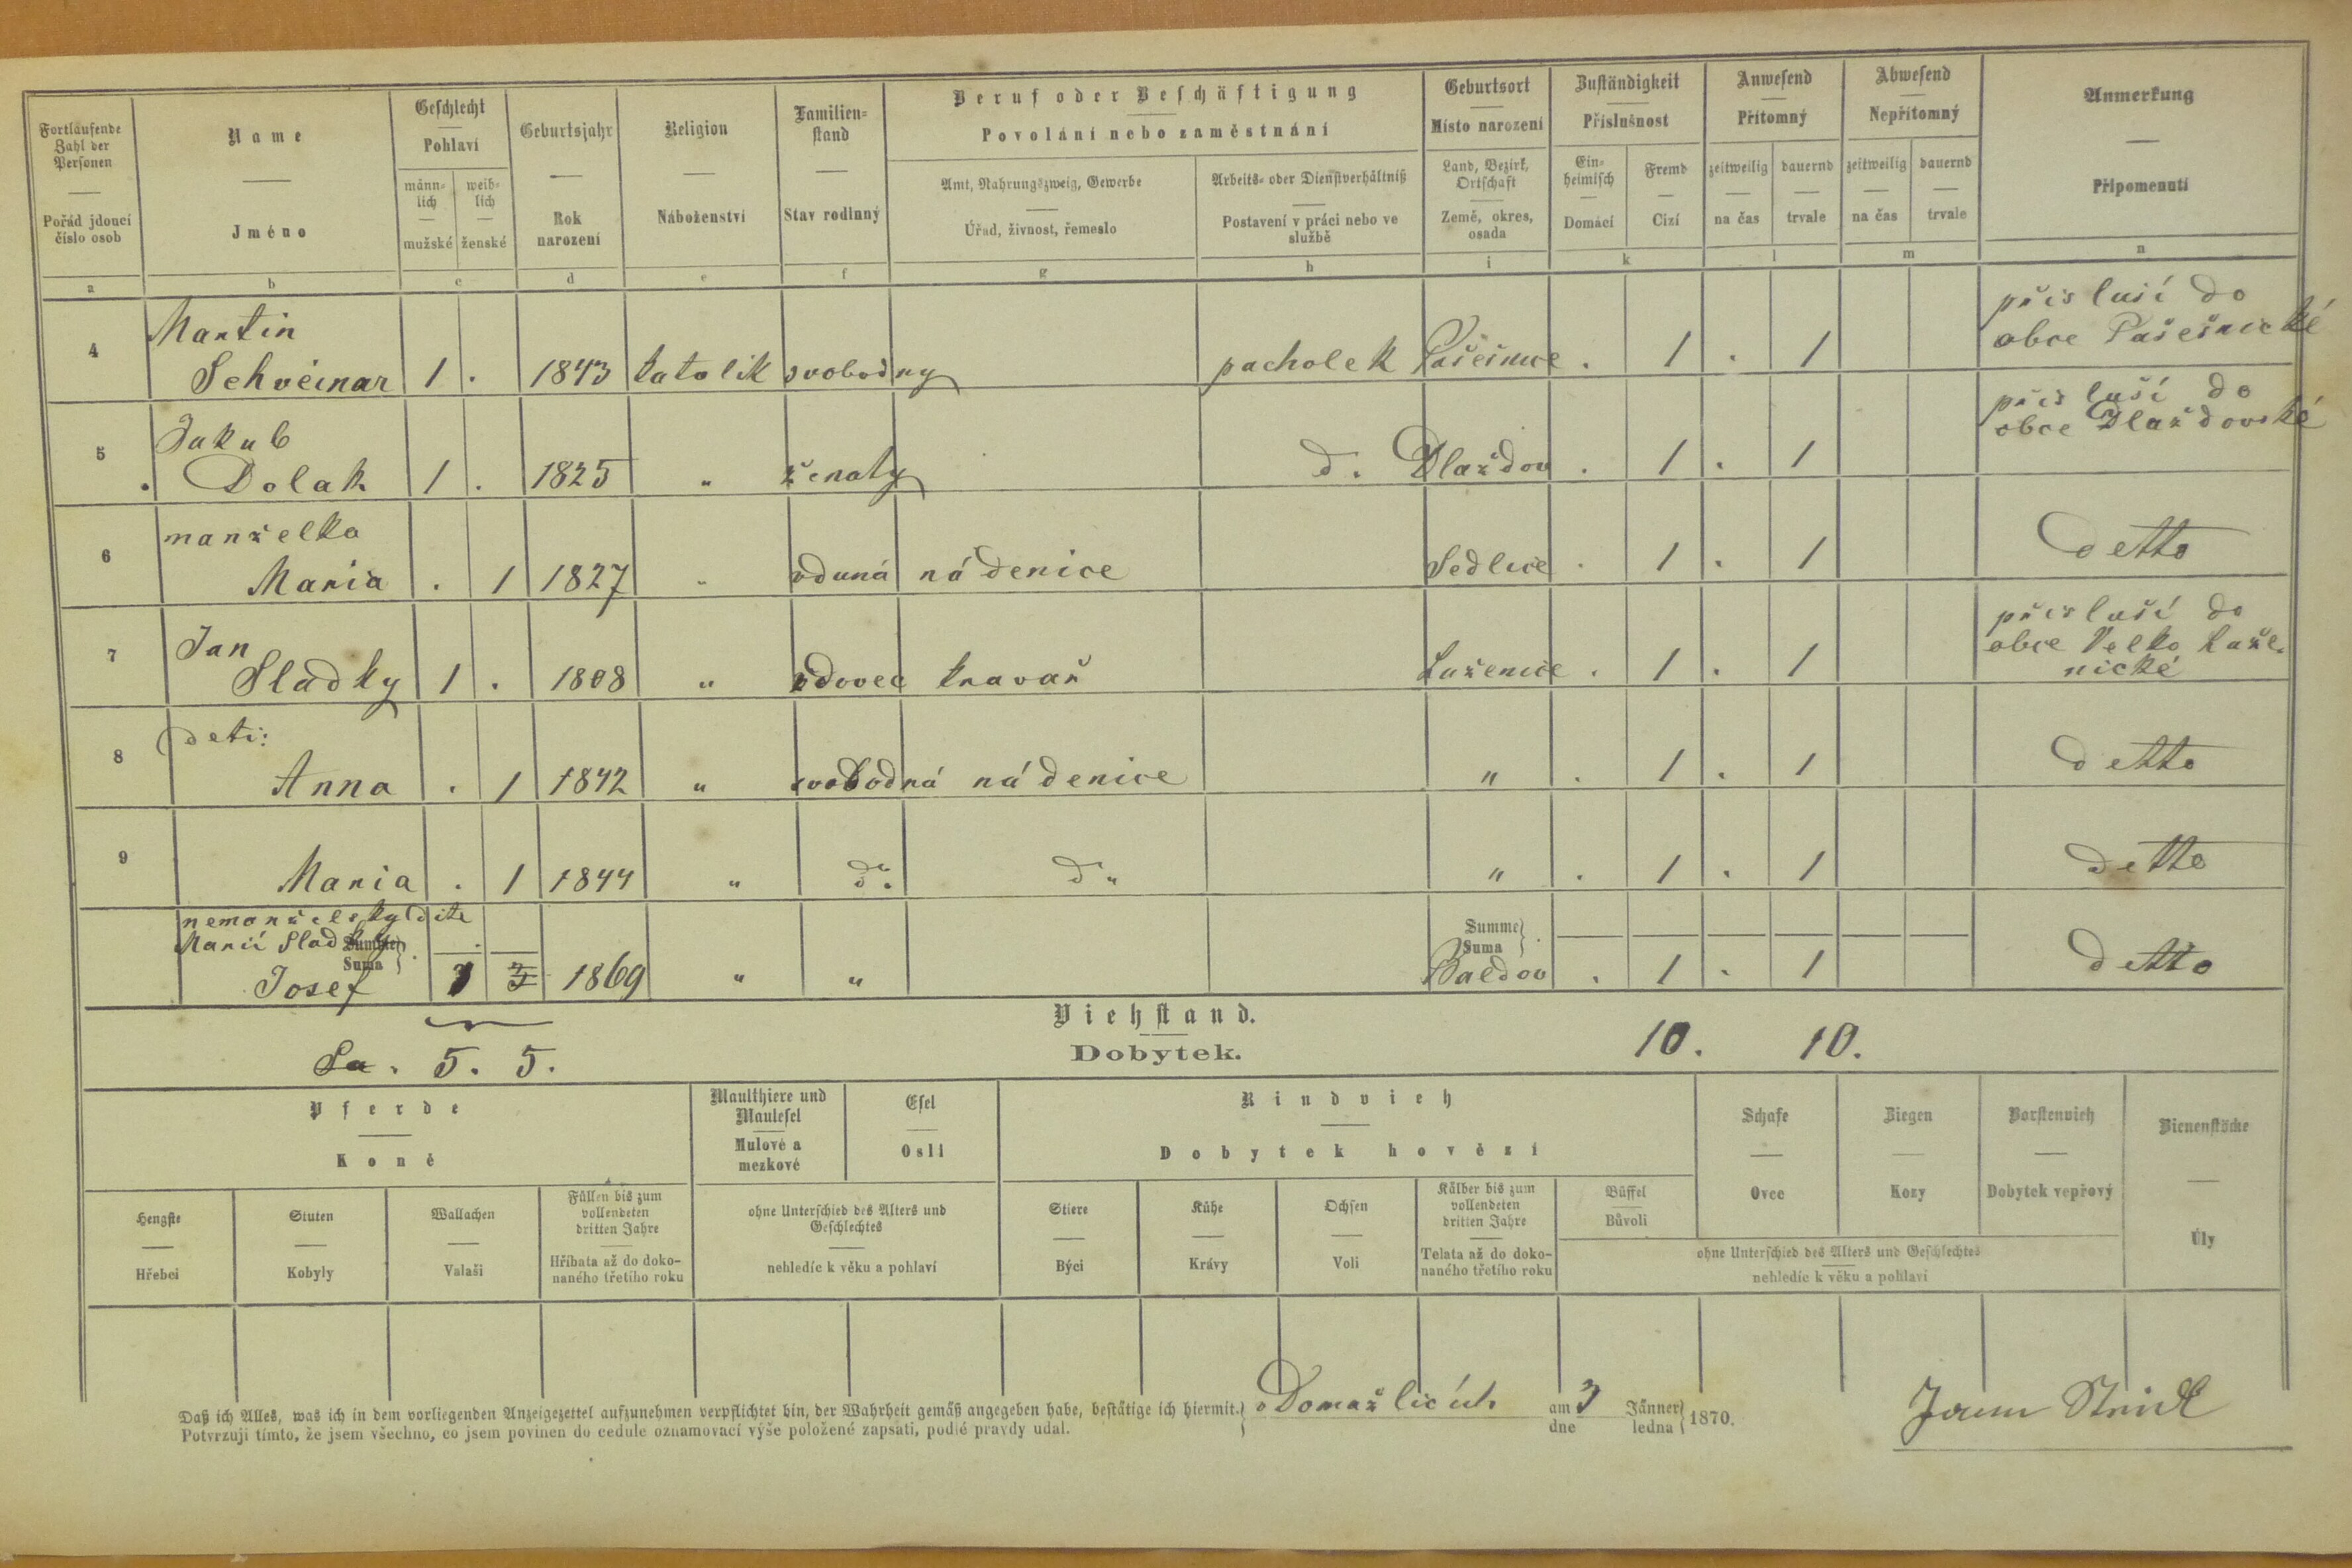 Fortlaufende Zahl der Personen
Pořád jdoucí číslo osob
Name
Jméno
Geschlecht
Pohlaví
männlich
mužské
weiblich
ženské
Geburtsjahr
Rok narození
Religion
Náboženství
Familienstand
Stav rodinný
Beruf oder Beschäftigung
Povolání nebo zaměstnání
Amt, Nahrungszweig, Gewerbe
Úřad, živnost, řemeslo
Arbeits- oder Dienstverhältniß
Postavení v práci nebo ve službě
Geburtsort
Místo narození
Land, Bezirk, Ortschaft
Země, okres, osada
Zuständigkeit
Příslušnost
Einheimisch
Domácí
Fremd
Cizí
Anwesend
Přítomný
zeitweilig
na čas
dauernd
trvale
Abwesend
Nepřítomný
zeitweilig
na čas
dauernd
trvale
Anmerkung
Připomenutí
a b c d e f g h i k l m n
4 Martin Schveinar 1 . 1843 katolik svobodny pacholek Pašešnice . 1 . 1 přísluší do obce Pašešnické
5 Jakub Dolak 1 . 1825 " ženaty d. Dlaždov . 1 . 1 přísluší do obce Dlaždovské
6 manželka Maria . 1 1827 " vduná nádenice Sedlice . 1 . 1 detto
7 Jan Sladky 1 . 1808 " vdovec kravař Luženice . 1 . 1 přísluší do obce Velko Luženické
8 deti: Anna . 1 1842 " svobodná nádenice " . 1 . 1 detto
9 Maria . 1 1844 " do. do " . 1 . 1 detto
nemanželsky dite
Marii Sladky
Summe
Suma
Josef 1869 " "
Summe
Suma
. 1 . 1 detto
Sa. 5. 5.
Viehstand.
Dobytek.
10. 10.
Pferde
Koně
Hengste
Hřebci
Stuten
Kobyly
Wallachen
Valaši
Füllen bis zum vollendeten dritten Jahre
Hříbata až do dokonaného třetího roku
Maulthiere und Maulesel
Mulové a mezkové
Esel
Osli
ohne Unterschied des Alters und Geschlechtes
nehledíc k věku a pohlaví
Rindvieh
Dobytek hovězí
Stiere
Býci
Kühe
Krávy
Ochsen
Voli
Kälber bis zum vollendeten dritten Jahre
Telata až do dokonaného třetího roku
Büffel
Bůvoli
Schafe
Ovce
Ziegen
Kozy
Borstenvieh
Dobytek vepřový
ohne Unterschied des Alters und Geschlechtes
nehledíc k věku a pohlaví
Bienenstöcke
Úly
Daß ich Alles, was ich in dem vorliegenden Anzeigezettel aufzunehmen verpflichtet bin, der Wahrheit gemäß angegeben habe, bestätige ich hiermit.
Potvrzuji tímto, že jsem všechno, co jsem povinen do cedule oznamovací výše položené zapsati, podlé pravdy udal.
v Domažlicích am dne 3 Jänner ledna 1870.